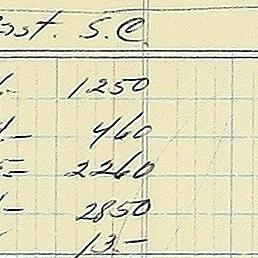 Inst. S.C.
1250
460
2260
2850
13.-